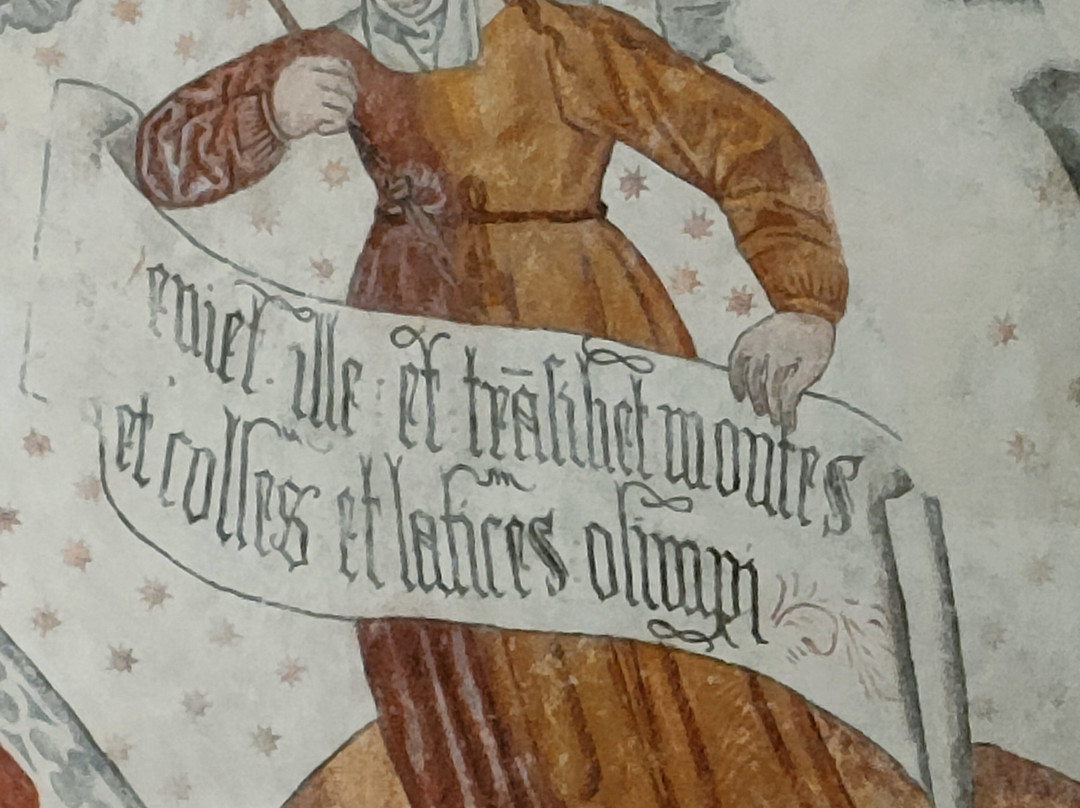 eniet ille et trāsiliet montes
et colles et latices olimpi